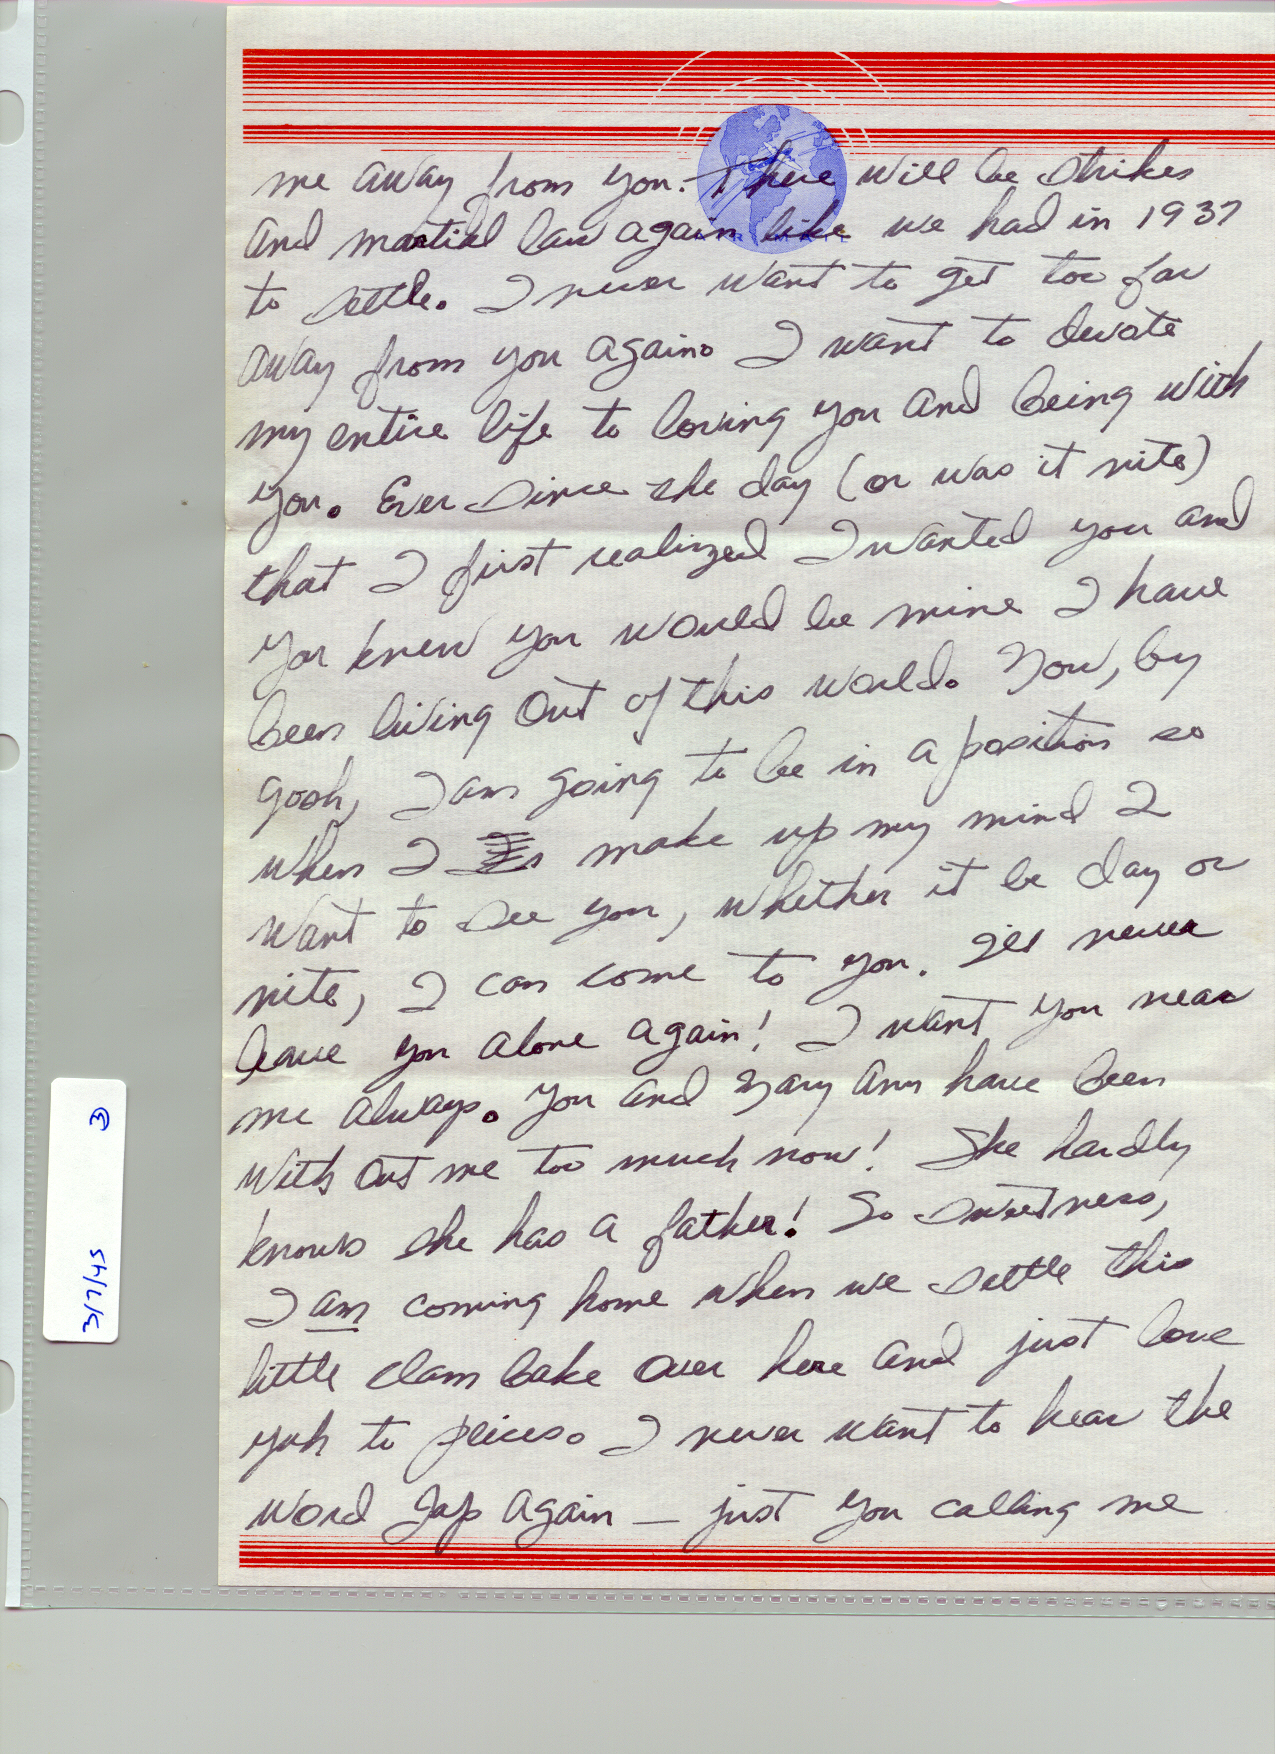 AIR MAIL
me away from you. There will be strikes
and martial law again like we had in 1937
to settle. I never want to get too far
away from you again. I want to devote
my entire life to loving you and being with
you. Ever since the day (or was it nite)
that I first realized I wanted you and
you knew you would be mine I have
been living out of this world. Now, by
gosh, I am going to be in a position so
when I make up my mind I
want to see you, whether it be day or
nite, I can come to you. I'll never
leave you alone again! I want you near
me always. You and Mary Ann have been
with out me too much now! She hardly
knows she has a father! So sweetness,
I am coming home when we settle this
little clam bake over here and just love
yuh to peices. I never want to hear the
word Jap again — just you calling me
3/7/45 3